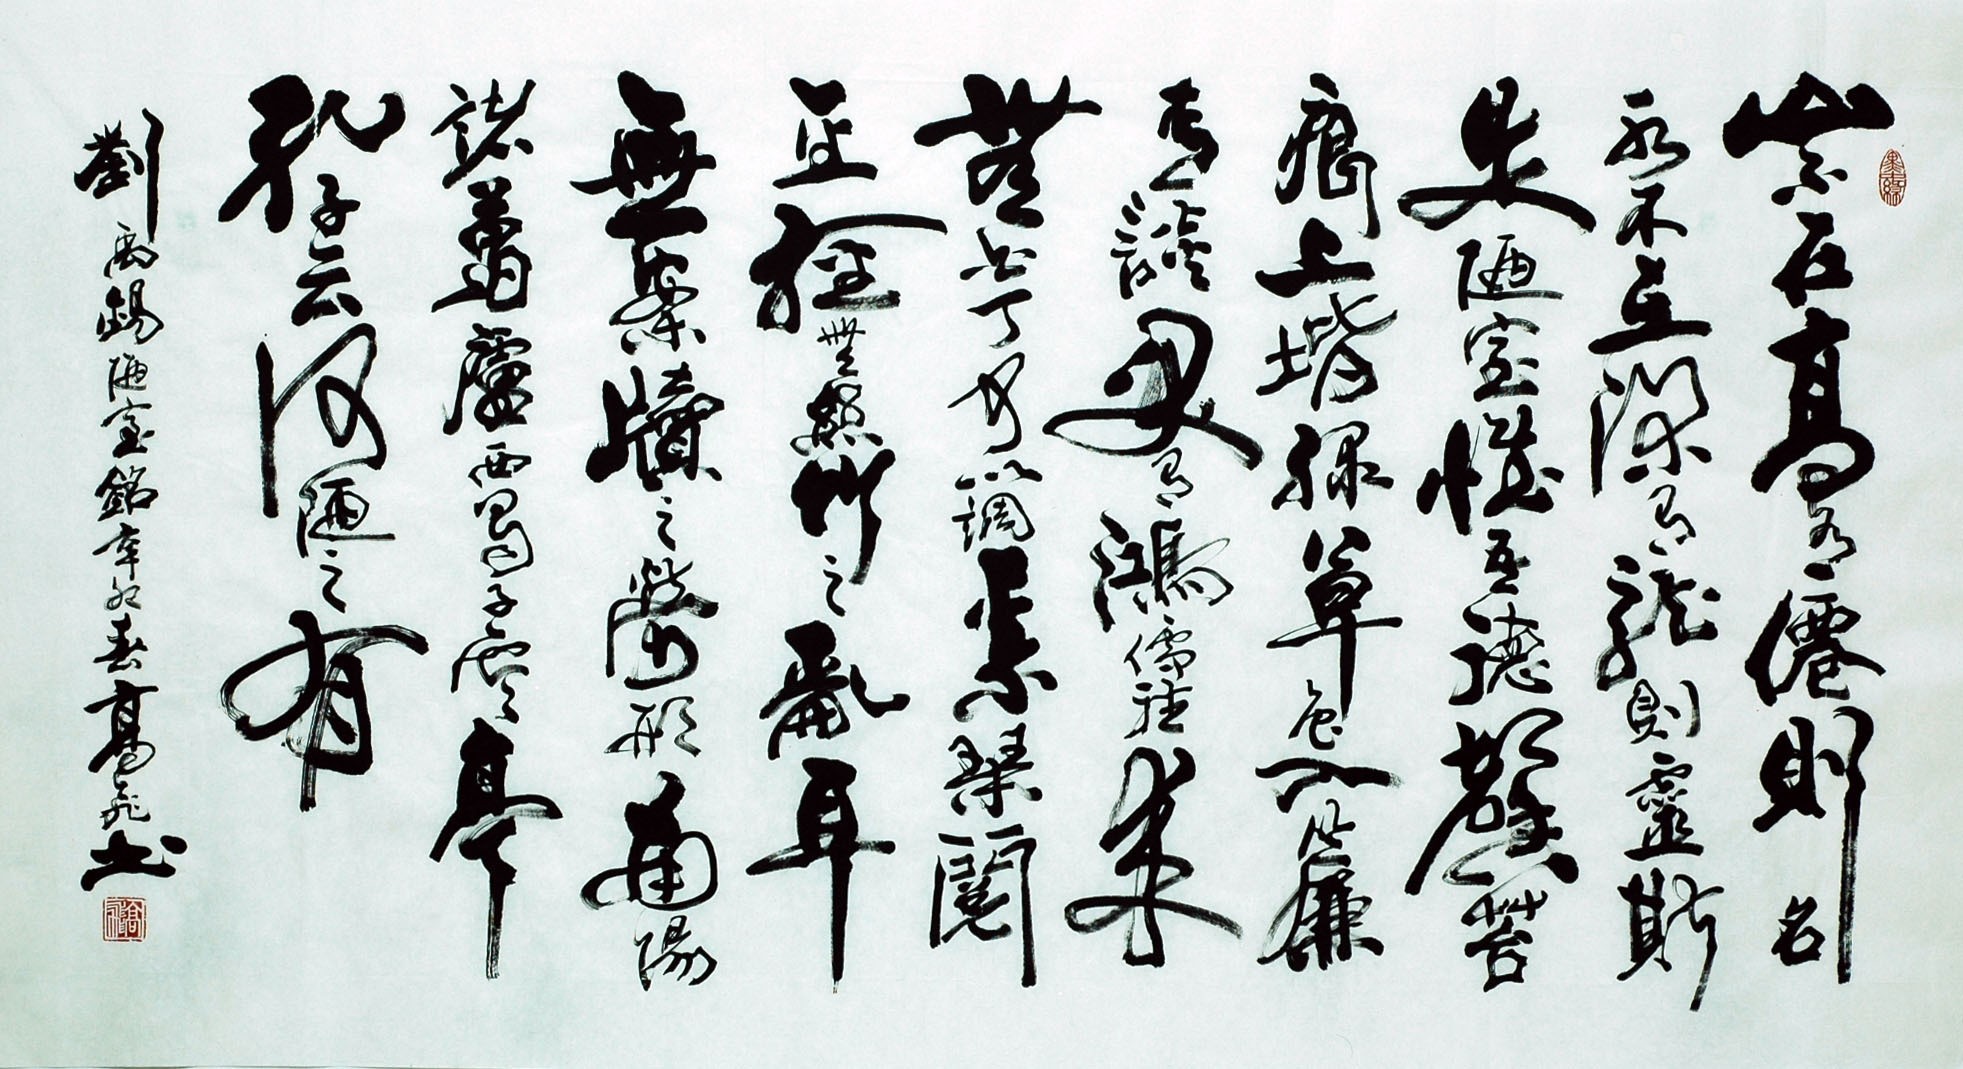 山不在高有僊則名
水不在深有龍則靈斯
是陋室惟吾德馨苔
痕上堦緑草色入簾
青談笑有鴻儒往來
無白丁可以調素琴閲
金經無絲竹之亂耳
無案牘之勞形南陽
諸葛廬西蜀子雲亭
孔子云何陋之有
劉禹錫陋室銘辛卯春高飛书